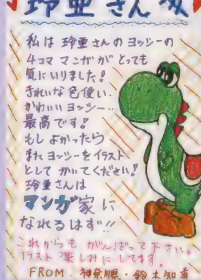 玲亜さんへ
私は玲亜さんのヨッシーの
4コママンガがとっても
気にいりました!
きれいな色使い、
かわいいヨッシー…
最高です!
もしよかったら
またヨッシーをイラスト
としてかいてください!
玲亜さんは
マンガ家に
なれるはず!!
これからもがんばって下さい。
イラスト楽しみにしてます。
FROM.神奈県・鈴木知